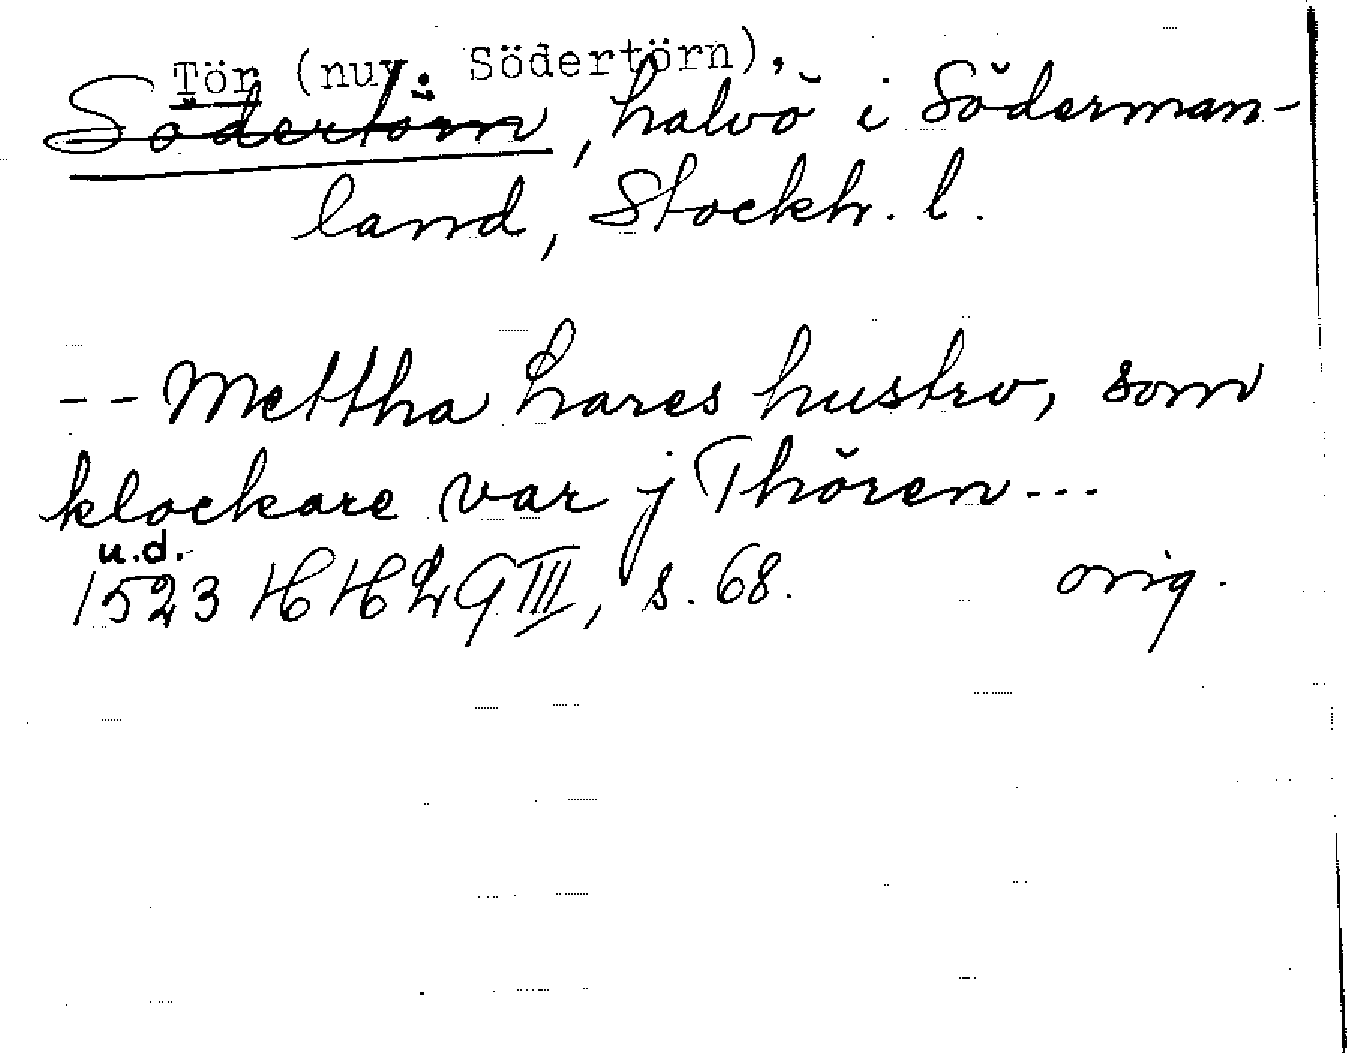 Tör (nuv. Södertörn),
Södertörn, halvö i Söderman-
land, Stockh. l.
-- Mettha hares hustrv, som
klockare var j Thören---
u.d.
1523 HH 29 III, s. 68. orig.